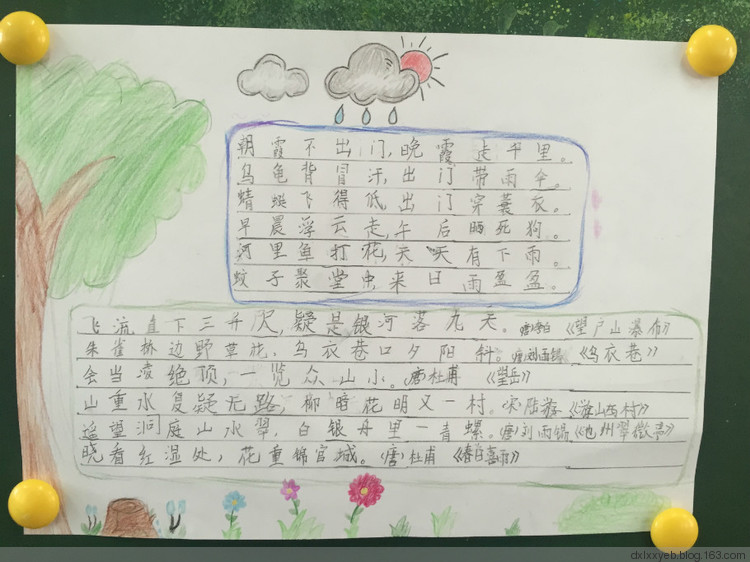 朝霞不出门,晚霞走千里。
乌龟背冒汗,出门带雨伞。
蜻蜓飞得低,出门穿蓑衣。
早晨浮云走,午后晒死狗。
河里鱼打花,天天有下雨。
蚊子聚堂中来日雨盈盈。
飞流直下三千尺,疑是银河落九天。唐李白《望户山瀑布》
朱雀桥边野草花,乌衣巷口夕阳斜。《乌衣巷》
会当凌绝顶,一览众山小。(唐)杜甫 《望岳》
山重水复疑无路,柳暗花明又一村。(宋)陆游《游山西村》
遥望洞庭山水翠,白银舟里一青螺。(唐)刘雨锡
晓看红湿处,花重锦官城。(唐)杜甫《春日喜雨》
dxlxxyeb.blog.163.com